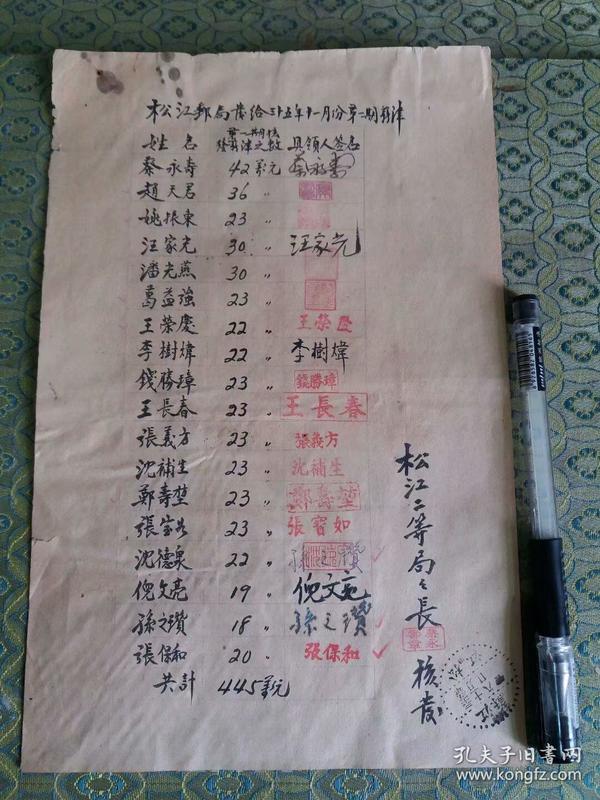 松江郵局發給三十五年十一月份第二期薪津
姓名 第一期薪津之数 具領人签名
蔡永壽 42萬元 蔡永壽
趙天君 36 〃
姚振東 23 〃
汪家光 30 〃 汪家光
潘光燕 30 〃
葛益強 23 〃
王榮慶 22 〃 王榮慶
李樹煒 22 〃 李樹煒
錢勝璋 23 〃 錢勝璋
王長春 23 〃 王長春
張義方 23 〃 張義方
沈補生 23 〃 沈補生
鄭壽堃 23 〃 鄭壽堃
張宝如 23 〃 張寶如
沈德泉 22 〃
倪文亮 19 〃 倪文亮
孫之瓚 18 〃 孫之瓚
張保和 20 〃 張保和
共計 445萬元
松江二等局々長 核發
孔夫子旧书网
www.kongfz.com